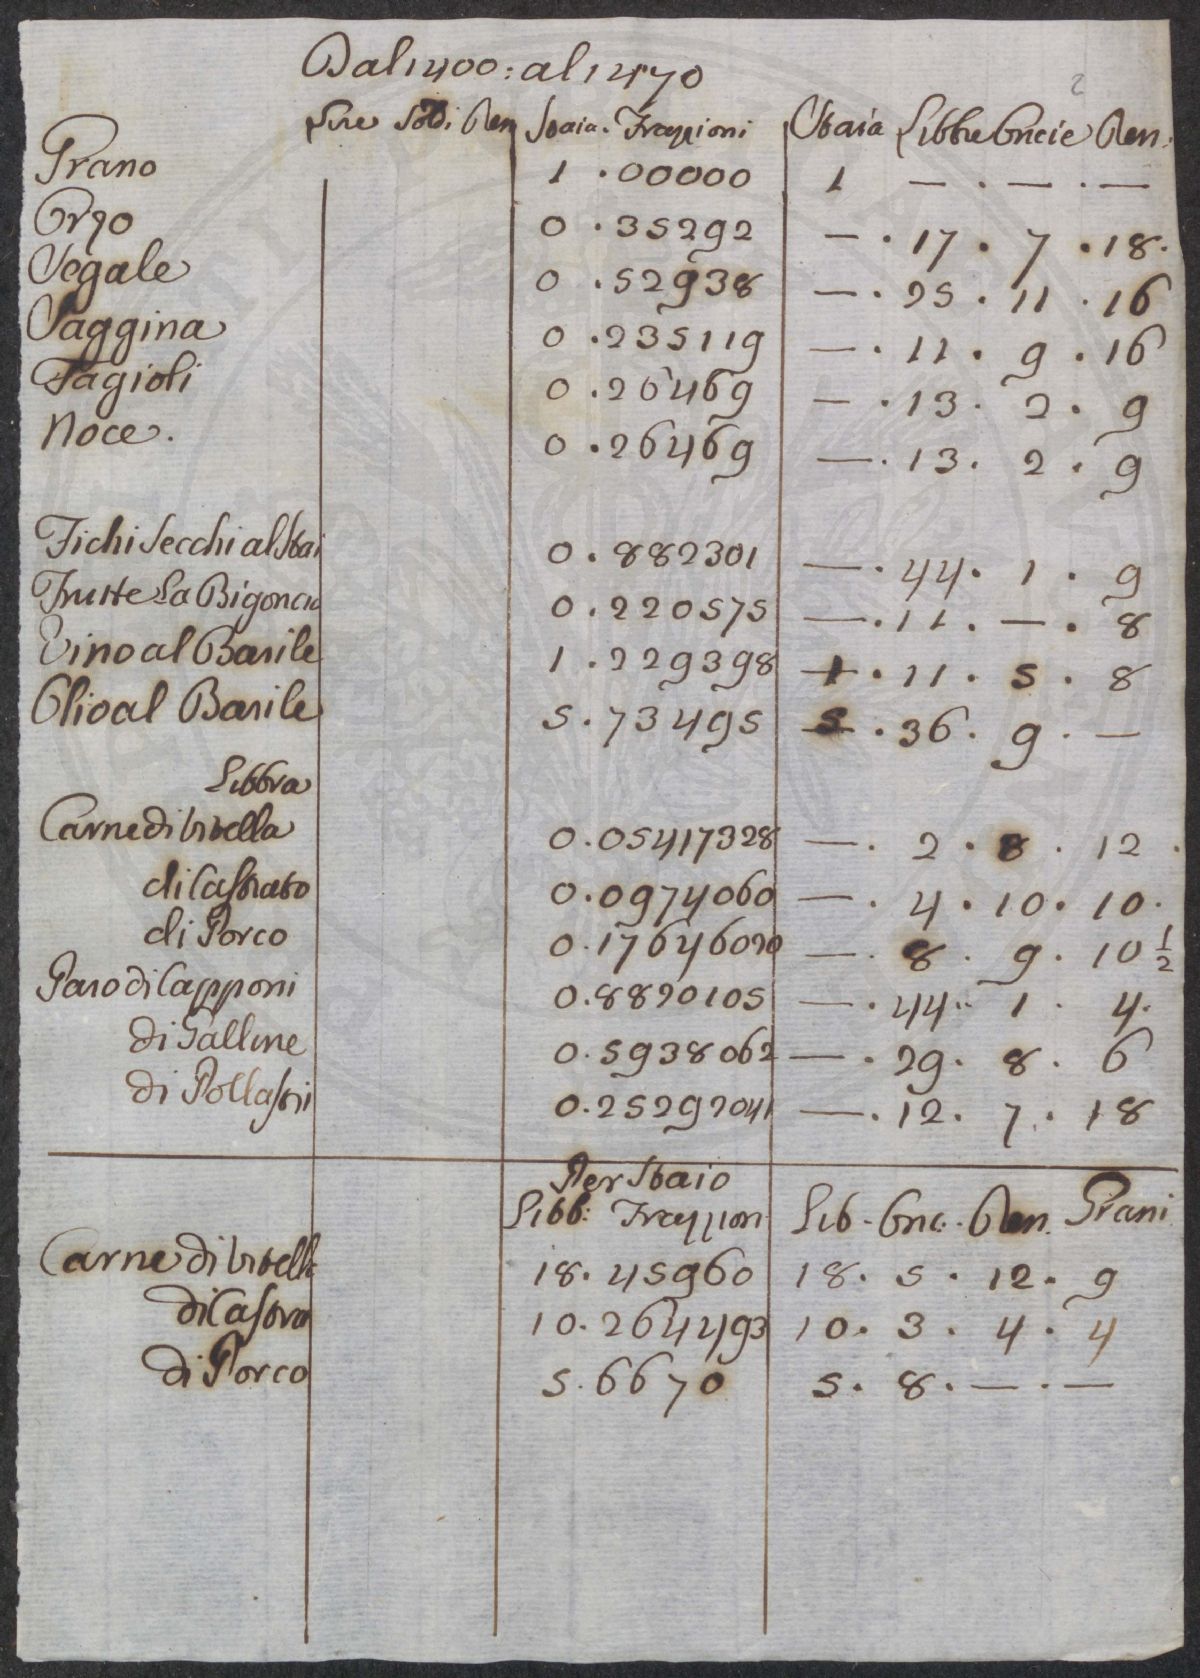 Dal 1400: al 1470
2
Lire Soldi Den Staia. Frazzioni Staia Libbre Oncie Den:
Grano 1 .00000 1 — . — . —
Orzo 0 .35292 — . 17 . 7 . 18.
Segale 0 .52938 — . 25 . 11 . 16
Saggina 0 .235119 — . 11 . 9 . 16
Fagioli 0 .26469 — . 13 . 2 . 9
Noce. 0 .26469 — . 13 . 2 . 9
Fichi Secchi al Stai 0 . 882301 — . 44 . 1 . 9
Frutte La Bigoncia 0 .220575 — . 11 . — . 8
Vino al Barile 1 .229398 1 . 11 . 5 . 8
Olio al Barile 5 .73495 5 . 36 . 9 . —
Libbra
Carne di Vitella 0.05417328 — . 2 . 8 . 12 .
di Castrato 0.0974060 — . 4 . 10 . 10.
di Porco 0.17646020 — . 8 . 9 . 10 1/2
Paro di Capponi 0.8820105 — . 44 . 1 . 4.
di Galline 0.5938062 — . 29 . 8 . 6
di Pollastri 0.25292041 — . 12 . 7 . 18
Per Staio
Libb: Frazzion Lib. Onc. Den. Grani
Carne di Vitella 18. 45960 18. 5 . 12 . 9
di Castra 10.2644493 10 . 3 . 4 . 4
di Porco 5. 6670 5 . 8 . — . —